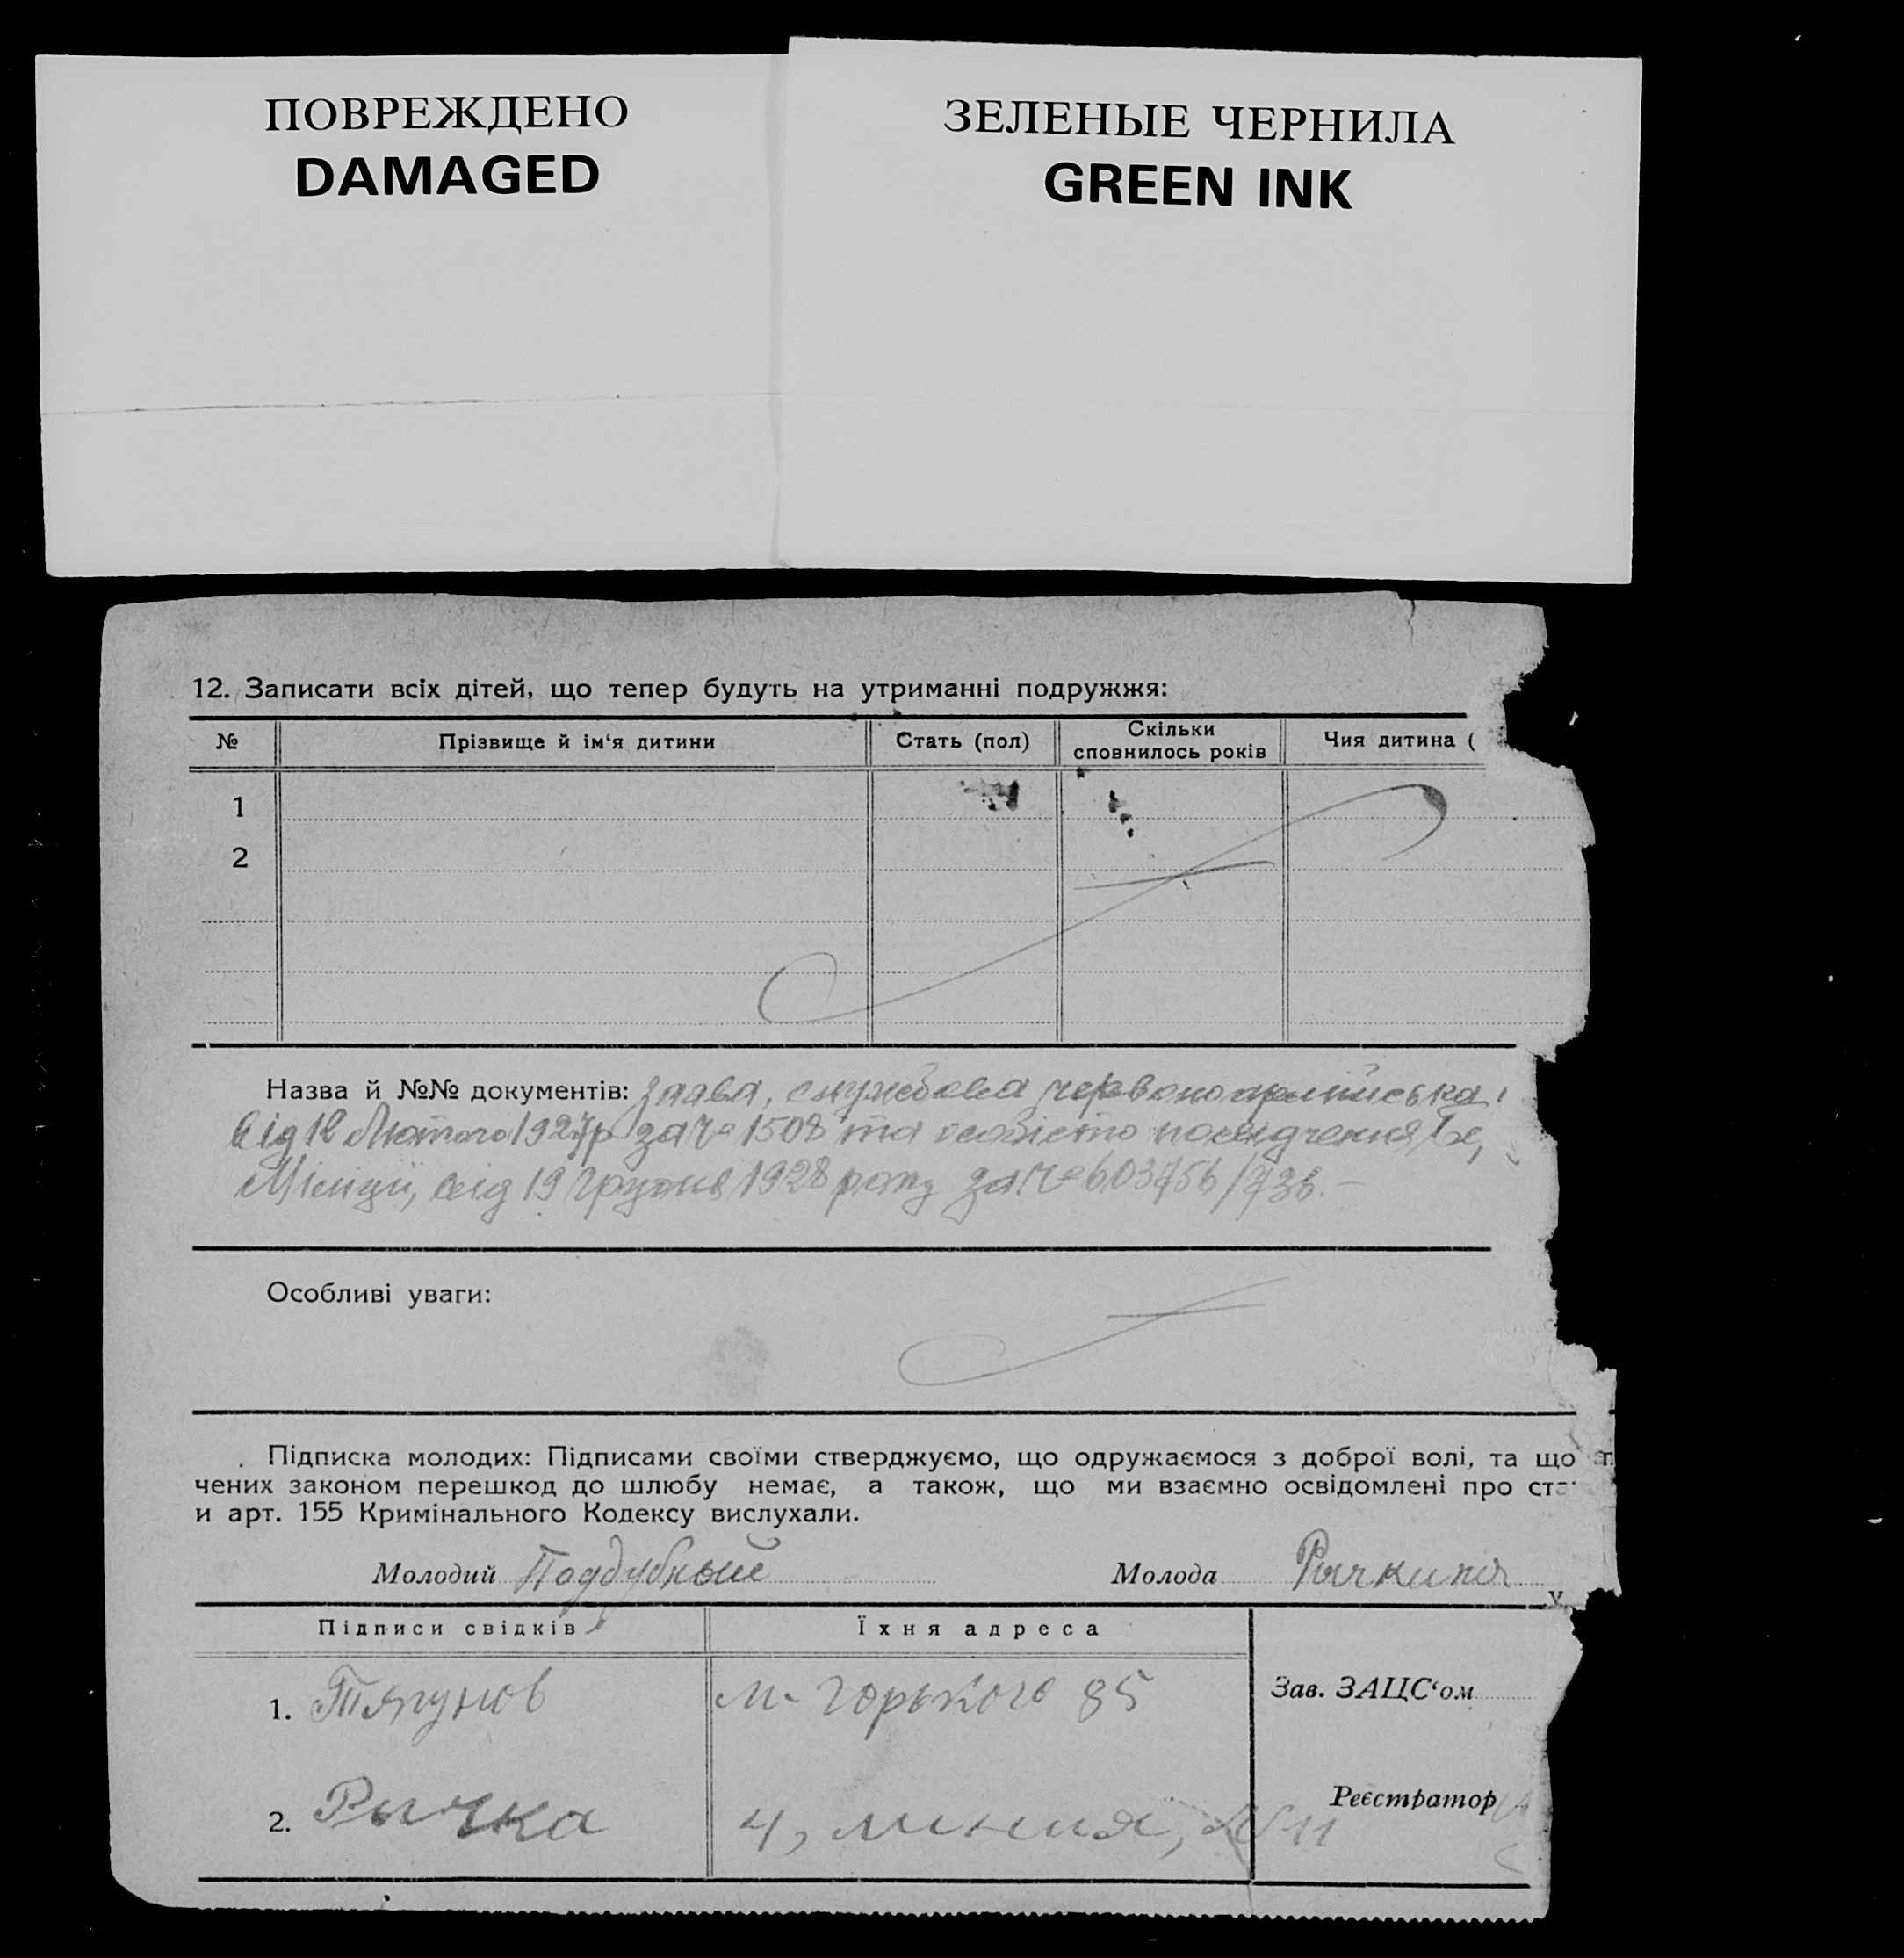 ПОВРЕЖДЕНО
DAMAGED
ЗЕЛЕНЫЕ ЧЕРНИЛА
GREEN INK
12. Записати всіх дітей, що тепер будуть на утриманні подружжя:
№ Прізвище й ім‘я дитини Стать (пол) Скільки сповнилось років Чия дитина (
1
2
Назва й №№ документів: Заява, службова червоноармійська
від 12 Лютого 1927р за № 1508 та особисто посвідчення
Міліції, від 19 Грудня 1928 року за № 603756/736. –
Особливі уваги:
Підписка молодих: Підписами своїми стверджуємо, що одружаємося з доброї волі, та що
чених законом перешкод до шлюбу немає, а також, що ми взаємно освідомлені про ста
и арт. 155 Кримінального Кодексу вислухали.
Молодий Поддубный Молода Рычкина
Підписи свідків Їхня адреса
1. Тягунов М-Горького 85 Зав. ЗАЦС‘ом
Реєстратор
2. Рычка 4, линия, № 11